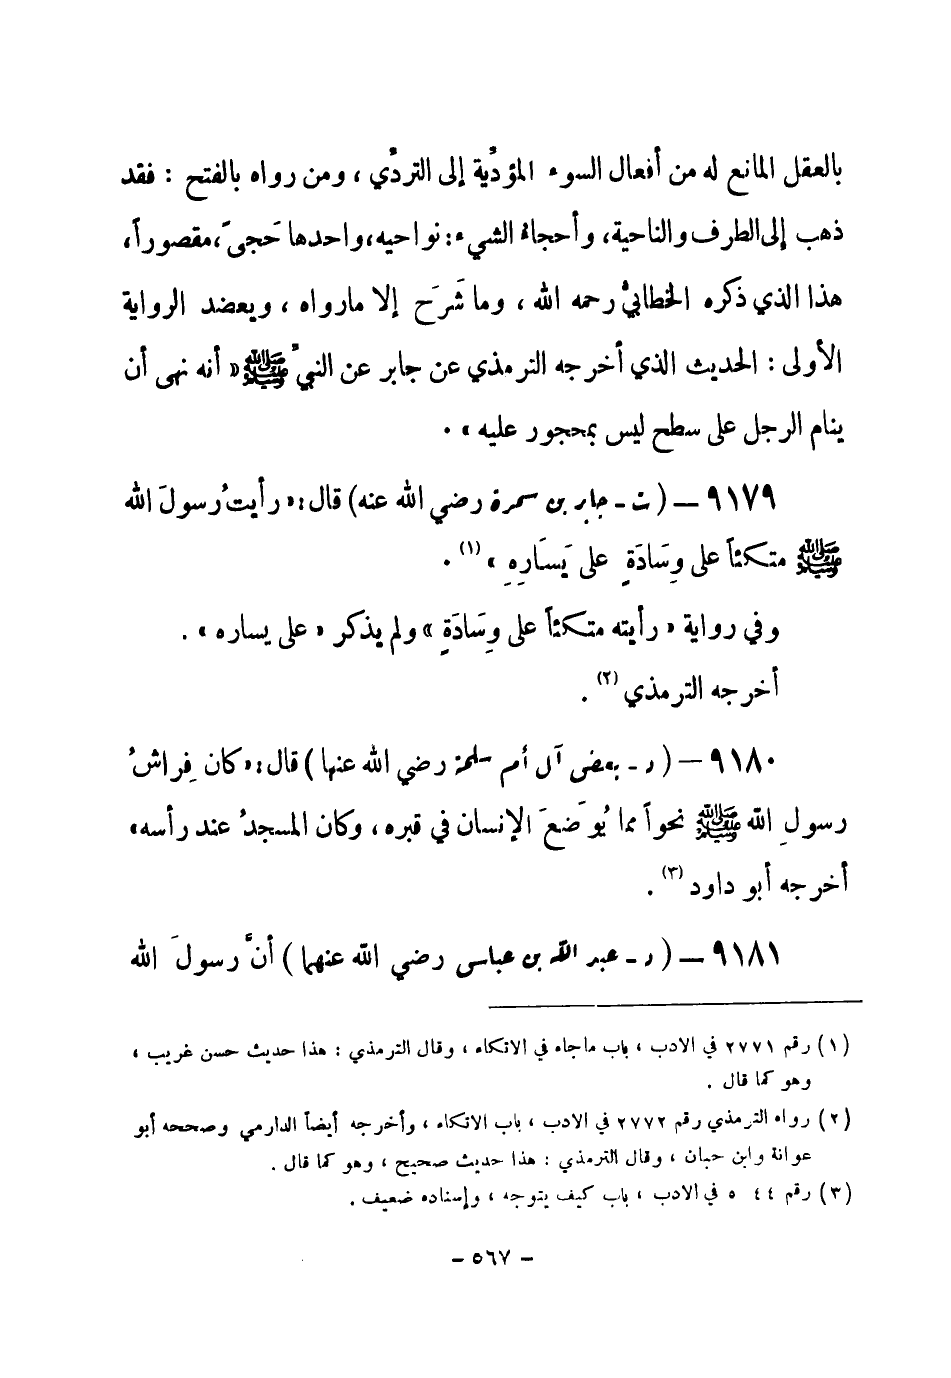 بالعقل المانع له من أفعال السوء المؤدِّية إلى التردِّي ، ومن رواه بالفتح : فقد
ذهب إلى الطرف والناحية، وأحجاءُ الشيء: نواحيه، واحدها حَجىً، مقصوراً،
هذا الذي ذكره الخطابيُّ رحمه الله ، وما شَرَح إلا ما رواه ، ويعضد الرواية
الأولى : الحديث الذي أخرجه الترمذي عن جابر عن النبيِّ ﷺ « أنه نهى أن
ينام الرجل على سطح ليس بمحجور عليه » .
٩١٧٩ — ( ت - جابر بن سمرة رضي الله عنه) قال: « رأيتُ رسولَ الله
ﷺ متكئاً على وِسَادَةٍ على يَسَارِهِ » (١) .
وفي رواية « رأيته متكئاً على وِسَادَةٍ » ولم يذكر « على يساره » .
أخرجه الترمذي (٢) .
٩١٨٠ — ( د - بعض آل أم سلمة رضي الله عنها ) قال: « كان فِراشُ
رسولِ الله ﷺ نحواً مما يُوضَعَ الإنسان في قبره ، وكان المسجدُ عند رأسه »
أخرجه أبو داود (٣) .
٩١٨١ — ( د - عبد الله بن عباس رضي الله عنهما ) أنَّ رسولَ الله
(١) رقم ٢٧٧١ في الادب ، باب ماجاء في الاتكاء ، وقال الترمذي : هذا حديث حسن غريب ،
وهو كما قال .
(٢) رواه الترمذي رقم ٢٧٧٢ في الادب ، باب الاتكاء ، وأخرجه أيضاً الدارمي وصححه أبو
عوانة وابن حبان ، وقال الترمذي : هذا حديث صحيح ، وهو كما قال .
(٣) رقم ٤٤ ٥ في الادب ، باب كيف يتوجه ، وإسناده ضعيف .
- ٥٦٧ -